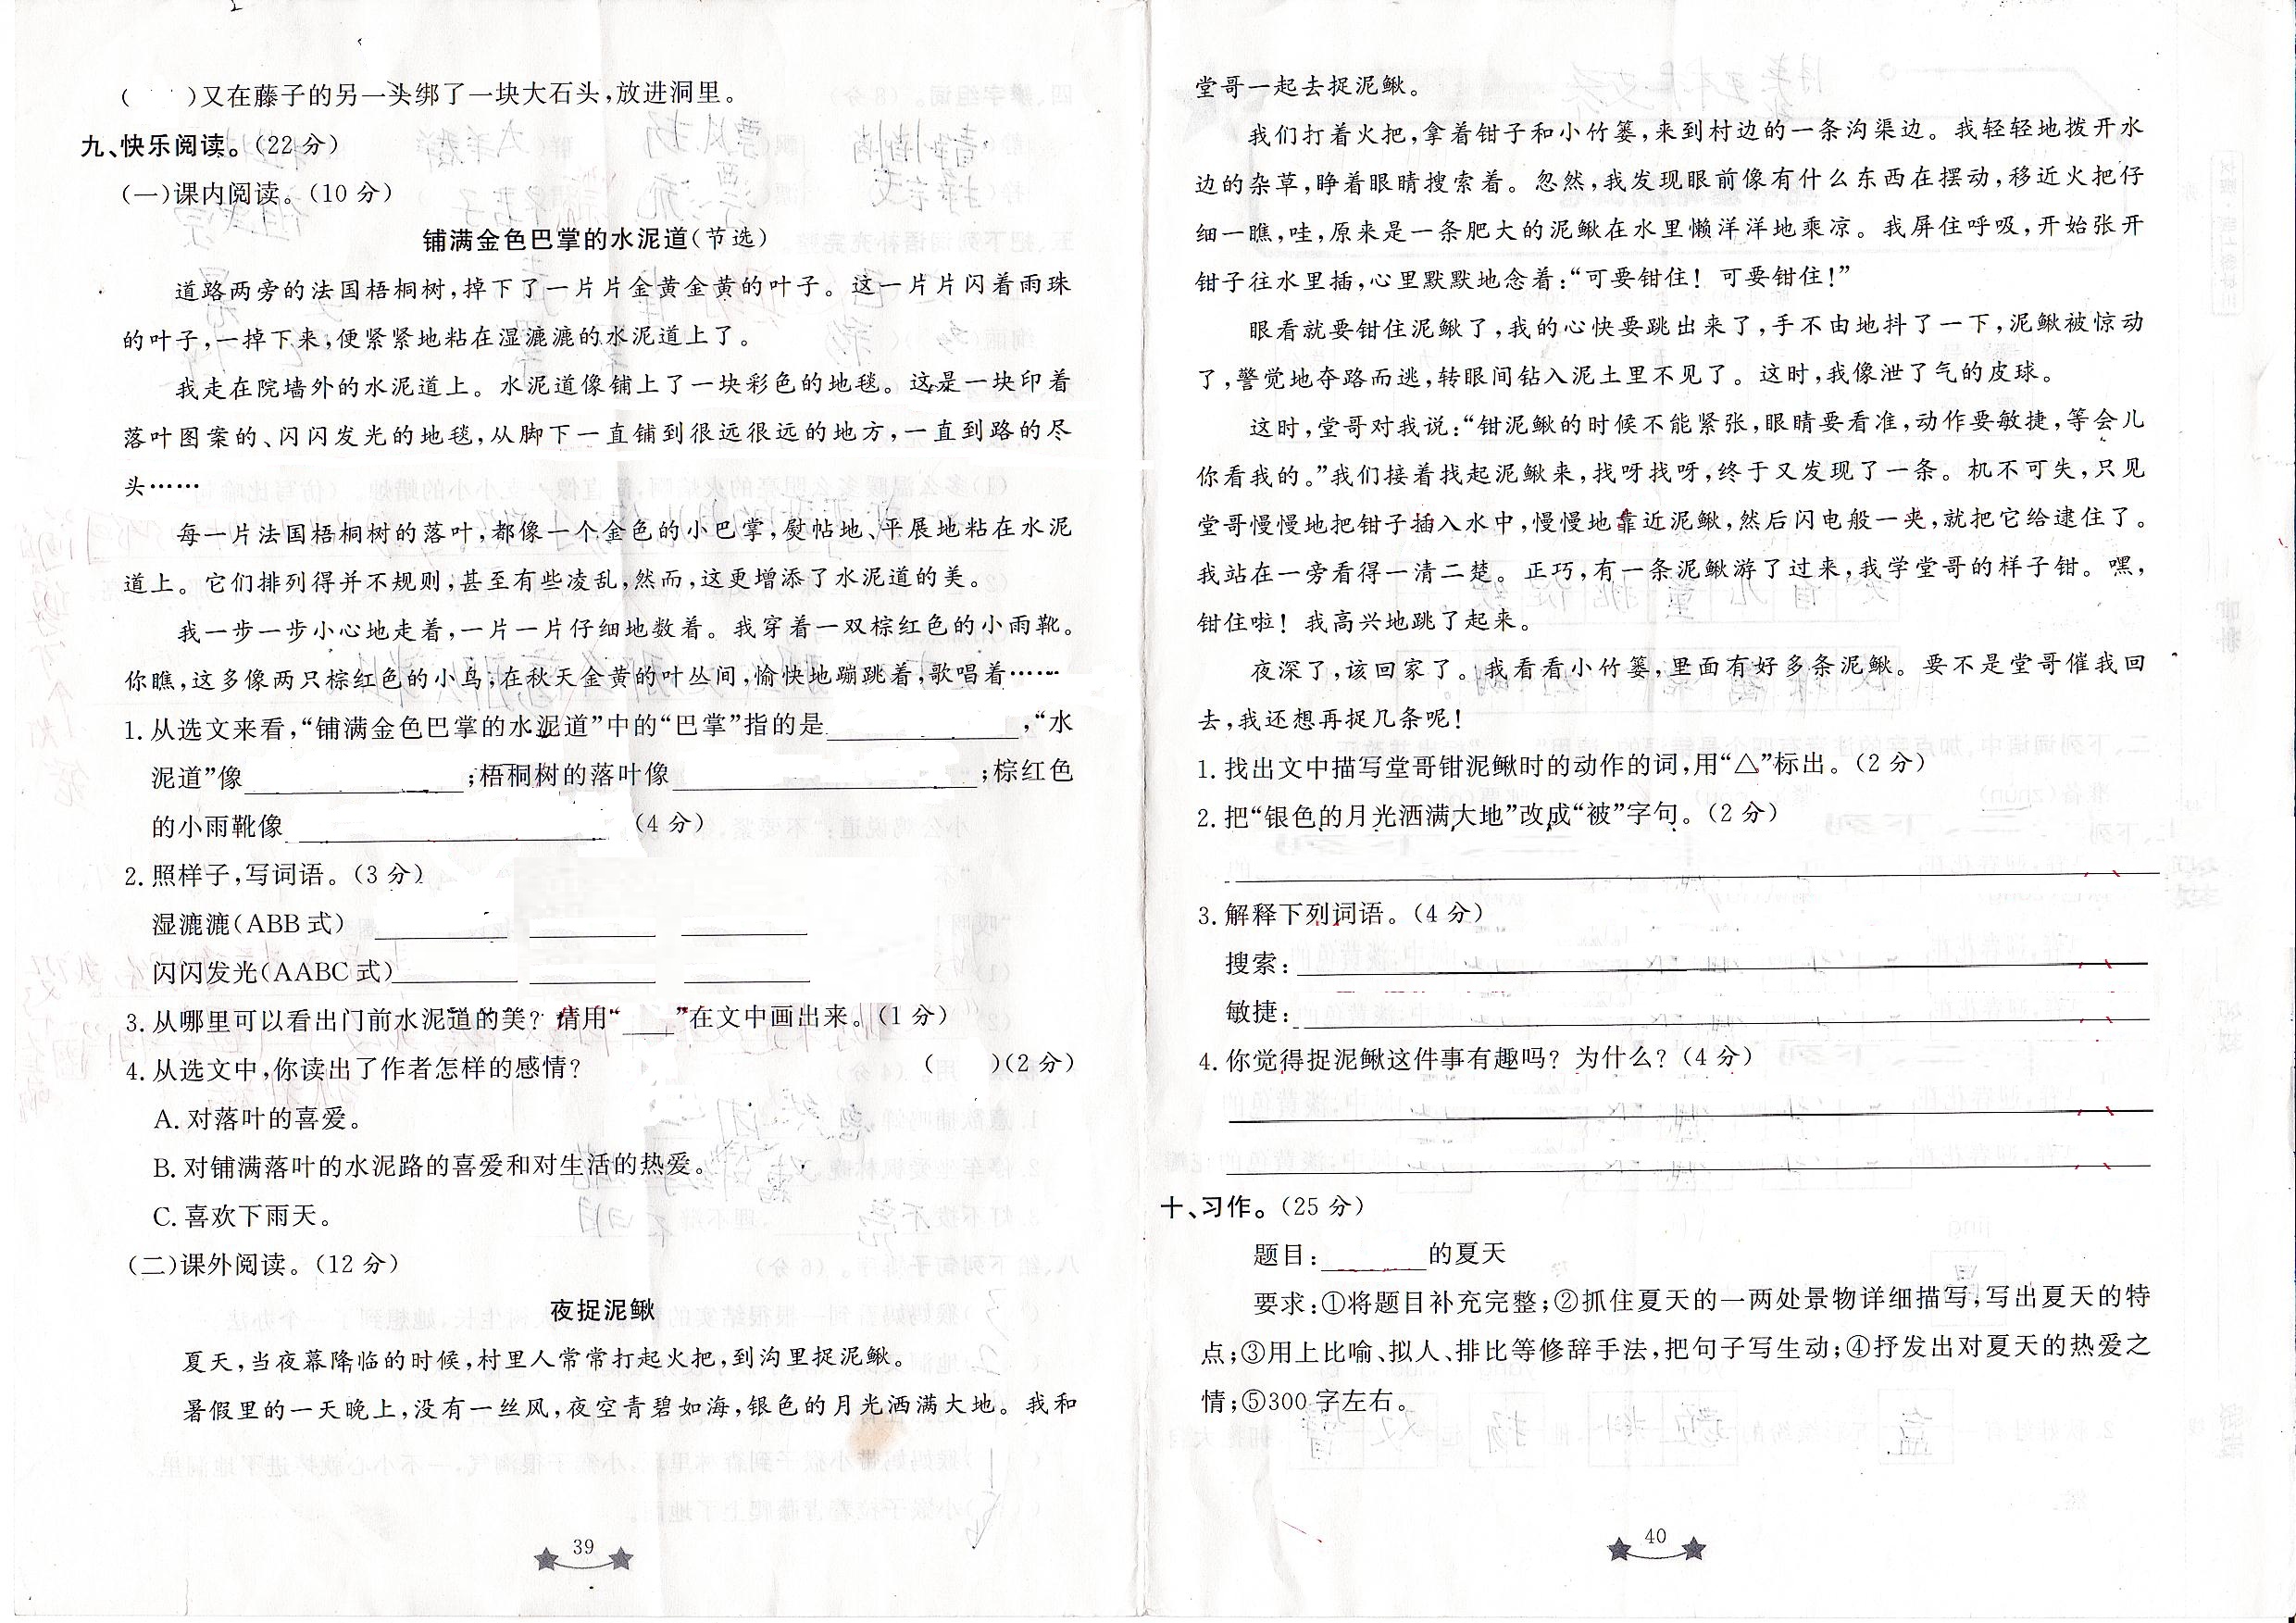 (    )又在藤子的另一头绑了一块大石头,放进洞里。
九、快乐阅读。(22 分)
(一)课内阅读。(10 分)
铺满金色巴掌的水泥道(节选)
道路两旁的法国梧桐树,掉下了一片片金黄金黄的叶子。这一片片闪着雨珠
的叶子,一掉下来,便紧紧地粘在湿漉漉的水泥道上了。
我走在院墙外的水泥道上。水泥道像铺上了一块彩色的地毯。这是一块印着
落叶图案的、闪闪发光的地毯,从脚下一直铺到很远很远的地方,一直到路的尽
头……
每一片法国梧桐树的落叶,都像一个金色的小巴掌,熨帖地、平展地粘在水泥
道上。它们排列得并不规则,甚至有些凌乱,然而,这更增添了水泥道的美。
我一步一步小心地走着,一片一片仔细地数着。我穿着一双棕红色的小雨靴。
你瞧,这多像两只棕红色的小鸟,在秋天金黄的叶丛间,愉快地蹦跳着,歌唱着……
1. 从选文来看,“铺满金色巴掌的水泥道”中的“巴掌”指的是________,“水
泥道”像________;梧桐树的落叶像________;棕红色
的小雨靴像________ (4 分)
2. 照样子,写词语。(3 分)
湿漉漉(ABB 式) ____ ____ ____
闪闪发光(AABC 式)____ ____ ____
3. 从哪里可以看出门前水泥道的美? 请用“____”在文中画出来。(1 分)
4. 从选文中,你读出了作者怎样的感情? (    )(2 分)
A. 对落叶的喜爱。
B. 对铺满落叶的水泥路的喜爱和对生活的热爱。
C. 喜欢下雨天。
(二)课外阅读。(12 分)
夜捉泥鳅
夏天,当夜幕降临的时候,村里人常常打起火把,到沟里捉泥鳅。
暑假里的一天晚上,没有一丝风,夜空青碧如海,银色的月光洒满大地。我和
39
堂哥一起去捉泥鳅。
我们打着火把,拿着钳子和小竹篓,来到村边的一条沟渠边。我轻轻地拨开水
边的杂草,睁着眼睛搜索着。忽然,我发现眼前像有什么东西在摆动,移近火把仔
细一瞧,哇,原来是一条肥大的泥鳅在水里懒洋洋地乘凉。我屏住呼吸,开始张开
钳子往水里插,心里默默地念着:“可要钳住! 可要钳住!”
眼看就要钳住泥鳅了,我的心快要跳出来了,手不由地抖了一下,泥鳅被惊动
了,警觉地夺路而逃,转眼间钻入泥土里不见了。这时,我像泄了气的皮球。
这时,堂哥对我说:“钳泥鳅的时候不能紧张,眼睛要看准,动作要敏捷,等会儿
你看我的。”我们接着找起泥鳅来,找呀找呀,终于又发现了一条。机不可失,只见
堂哥慢慢地把钳子插入水中,慢慢地靠近泥鳅,然后闪电般一夹,就把它给逮住了。
我站在一旁看得一清二楚。正巧,有一条泥鳅游了过来,我学堂哥的样子钳。嘿,
钳住啦! 我高兴地跳了起来。
夜深了,该回家了。我看看小竹篓,里面有好多条泥鳅。要不是堂哥催我回
去,我还想再捉几条呢!
1. 找出文中描写堂哥钳泥鳅时的动作的词,用“△”标出。(2 分)
2. 把“银色的月光洒满大地”改成“被”字句。(2 分)
3. 解释下列词语。(4 分)
搜索:________
敏捷:________
4. 你觉得捉泥鳅这件事有趣吗? 为什么?(4 分)
十、习作。(25 分)
题目:____的夏天
要求:①将题目补充完整;②抓住夏天的一两处景物详细描写,写出夏天的特
点;③用上比喻、拟人、排比等修辞手法,把句子写生动;④抒发出对夏天的热爱之
情;⑤300 字左右。
40